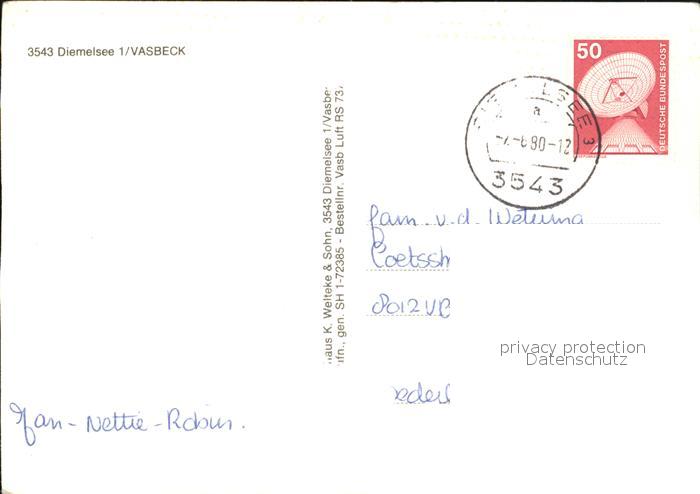 3543 Diemelsee 1/VASBECK
50
DEUTSCHE BUNDESPOST
LSEE 3
a
80-12
3543
haus K. Welteke & Sohn, 3543 Diemelsee 1/Vasbe
fn., gen. SH 1-72385 - Bestellnr. Vasb Luft RS 73
fam. v.d.
8012 VB
privacy protection
Datenschutz
Jan - Nettie - Robin.